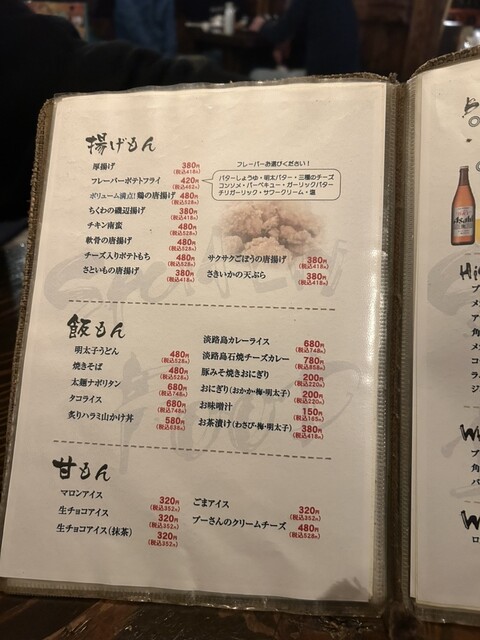 揚げもん
厚揚げ 380円 (税込418円)
フレーバーポテトフライ 420円 (税込462円)
フレーバーお選びください！
バターしょうゆ・明太バター・三種のチーズ
コンソメ・バーベキュー・ガーリックバター
チリガーリック・サワークリーム・塩
ボリューム満点！鶏の唐揚げ 480円 (税込528円)
ちくわの磯辺揚げ 380円 (税込418円)
チキン南蛮 480円 (税込528円)
軟骨の唐揚げ 480円 (税込528円)
チーズ入りポテトもち 480円 (税込528円)
さといもの唐揚げ 380円 (税込418円)
サクサクごぼうの唐揚げ 380円 (税込418円)
さきいかの天ぷら 380円 (税込418円)
飯もん
明太子うどん 480円 (税込528円)
焼きそば 480円 (税込528円)
太麺ナポリタン 680円 (税込748円)
タコライス 680円 (税込748円)
炙りハラミ山かけ丼 580円 (税込638円)
淡路島カレーライス 680円 (税込748円)
淡路島石焼チーズカレー 780円 (税込858円)
豚みそ焼きおにぎり 200円 (税込220円)
おにぎり(おかか・梅・明太子) 200円 (税込220円)
お味噌汁 150円 (税込165円)
お茶漬け(わさび・梅・明太子) 380円 (税込418円)
甘もん
マロンアイス 320円 (税込352円)
生チョコアイス 320円 (税込352円)
生チョコアイス(抹茶) 320円 (税込352円)
ごまアイス 320円 (税込352円)
プーさんのクリームチーズ 480円 (税込528円)
Asahi